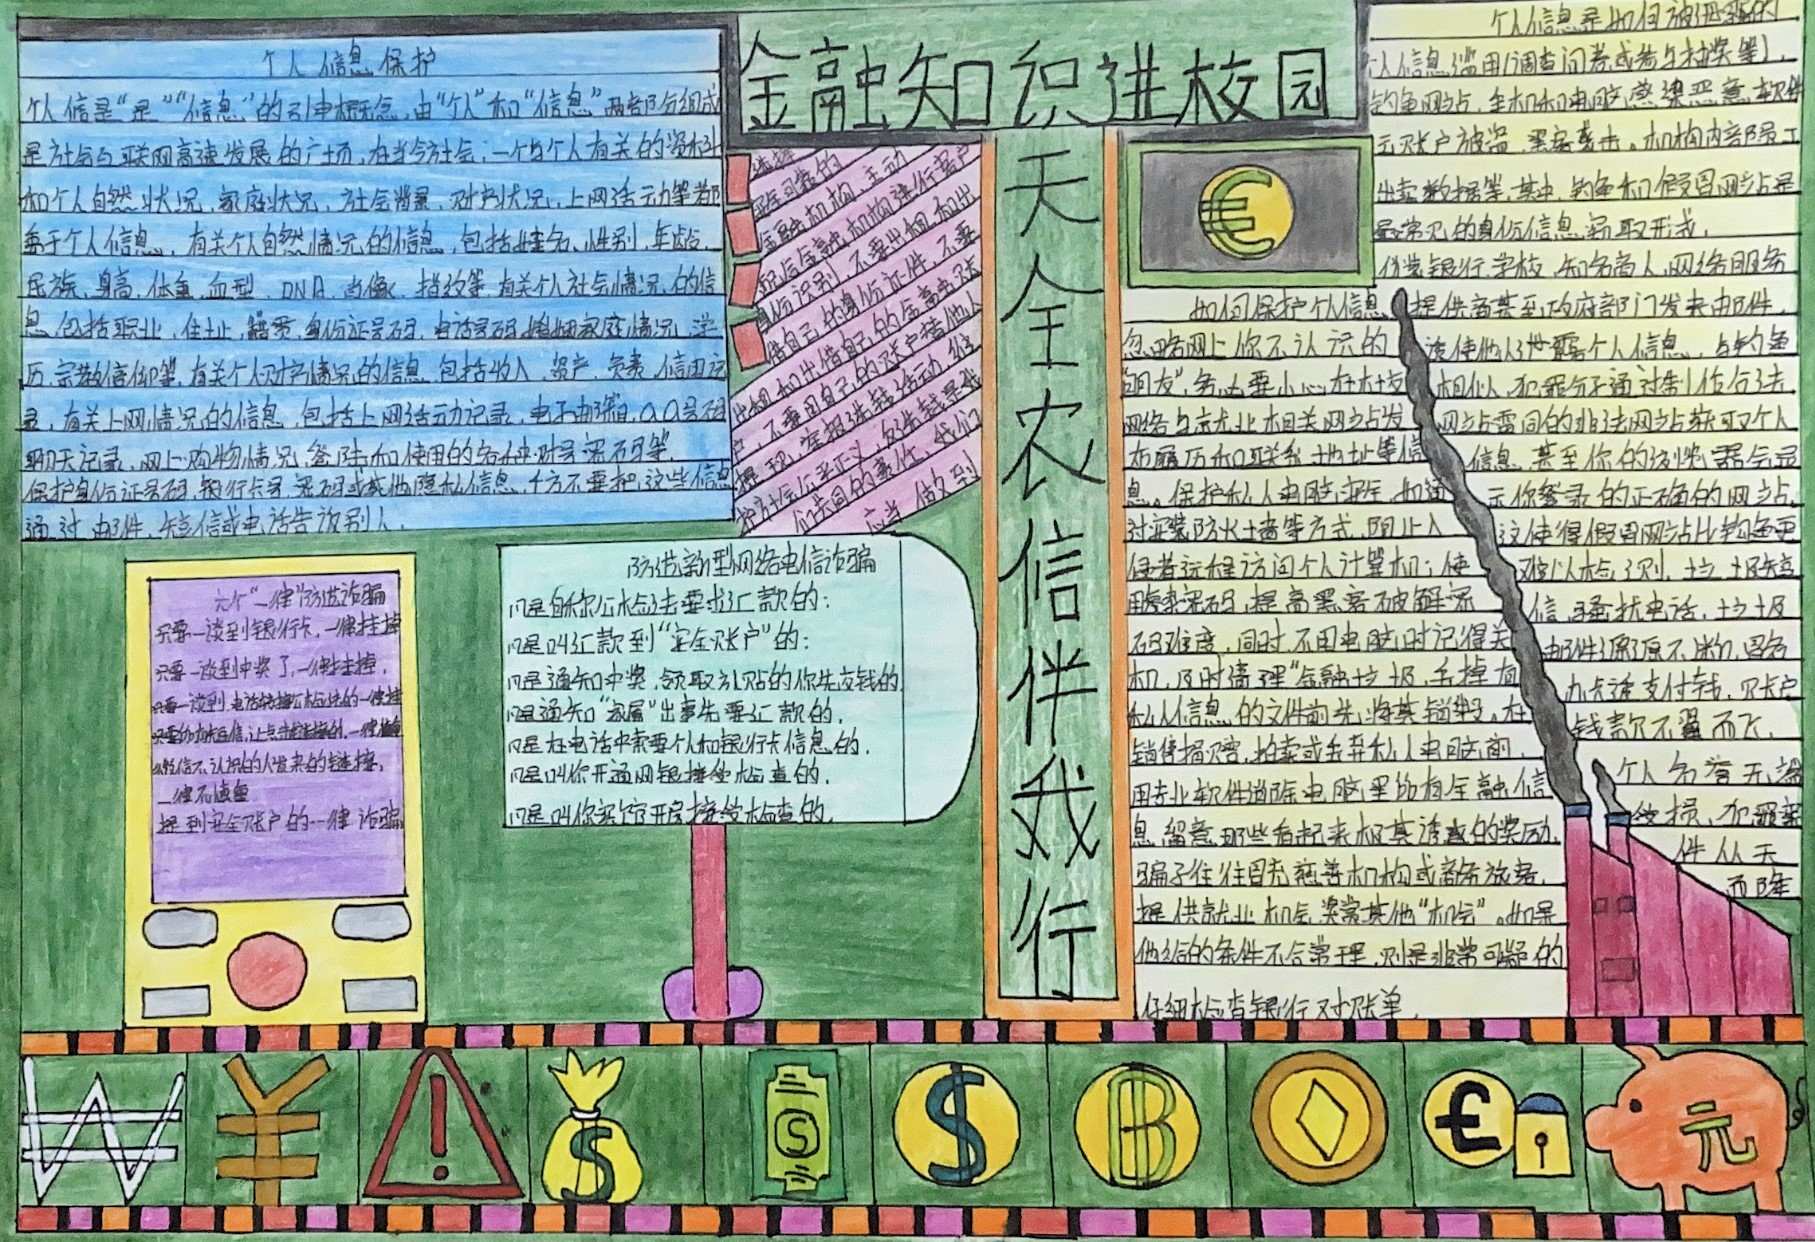 金融知识进校园
天全农信伴我行
个人信息保护
个人信息"是""信息"的引申概念,由"个人"和"信息"两部分组成
是社会互联网高速发展的广场,在当今社会,一个与个人有关的资料
和个人自然状况,家庭状况,社会背景,财产状况,上网活动等都
属于个人信息,有关个人自然情况的信息,包括姓名,性别,年龄,
民族,身高,体重,血型,DNA,肖像,指纹等,有关个人社会情况的信
息,包括职业,住址,籍贯,身份证号码,电话号码,婚姻家庭情况,学
历,宗教信仰等,有关个人财产情况的信息,包括收入,资产,负责,信用记
录,有关上网情况的信息,包括上网活动记录,电子邮箱,QQ号码
聊天记录,网上购物情况,登陆和使用的各种账号密码等,
保护身份证号码,银行卡号,密码或其他隐私信息,千万不要把这些信息
通过邮件,短信或电话告诉别人,
选择
金融机构,主动
配合金融机构进行客户
身份识别,不要出租和出
借自己的身份证件,不要
出租和出借自己的金融账
户,不要用自己的账户替他人
提现,举报洗钱活动,维
护社会公平正义,反洗钱是我
们共同的责任,我们
应当做到
六个"一律"防诈骗
只要一谈到银行卡,一律挂掉
只要一谈到中奖了,一律挂掉,
只要一谈到电话转接公检法的一律挂
微信不认识的人发来的链接,
一律不点
提到安全账户的一律诈骗
防范新型网络电信诈骗
凡是自称公检法要求汇款的:
凡是叫汇款到"安全账户"的:
凡是通知中奖,领取补贴的你先交钱的,
凡是通知"家属"出事先要汇款的,
凡是在电话中索要个人和银行卡信息的,
凡是叫你开通网银接受检查的,
凡是叫你宾馆开房接受检查的,
个人信息是如何被泄露的
个人信息滥用(调查问卷或者与抽奖等),
钓鱼网站,手机和电脑感染恶意软件
元账户被盗,黑客袭击。机构内部员工
出卖数据等,其中,钓鱼和假冒网站是
最常见的身份信息窃取形式,
伪装银行,学校,知名商人,网络服务
提供商甚至政府部门发来邮件,
诱使他人泄露个人信息,与钓鱼
相似,犯罪分子通过制作合法
网站雷同的非法网站获取个人
信息,甚至你的浏览器会显
示你登录的正确的网站,
这使得假冒网站比钓鱼更
难以检测,垃圾短
信,骚扰电话,垃圾
邮件源源不断,冒名
办卡透支付钱,账户
钱款不翼而飞,
个人名誉无端
受损,犯罪案
件从天
而降
如何保护个人信息
忽略网上你不认识的
"朋友",务必要小心在社交
网络与就业相关网站发
布履历和联系地址等信
息。保护私人电脑安全,如通
过安装防火墙等方式,阻止入
侵者远程访问个人计算机;使
用复杂密码,提高黑客破解密
码难度,同时,不用电脑时记得关
机,及时清理"金融垃圾,丢掉有
私人信息的文件前先将其销毁。在
销售捐赠,拍卖或丢弃私人电脑前,
用专业软件消除电脑里的有金融信
息,留意那些看起来极其诱惑的奖励,
骗子往往冒充慈善机构或商务旅客,
提供就业机会,奖赏其他"机会"。如是
他给的条件不合常理,则是非常可疑的
仔细检查银行对账单,
S
元